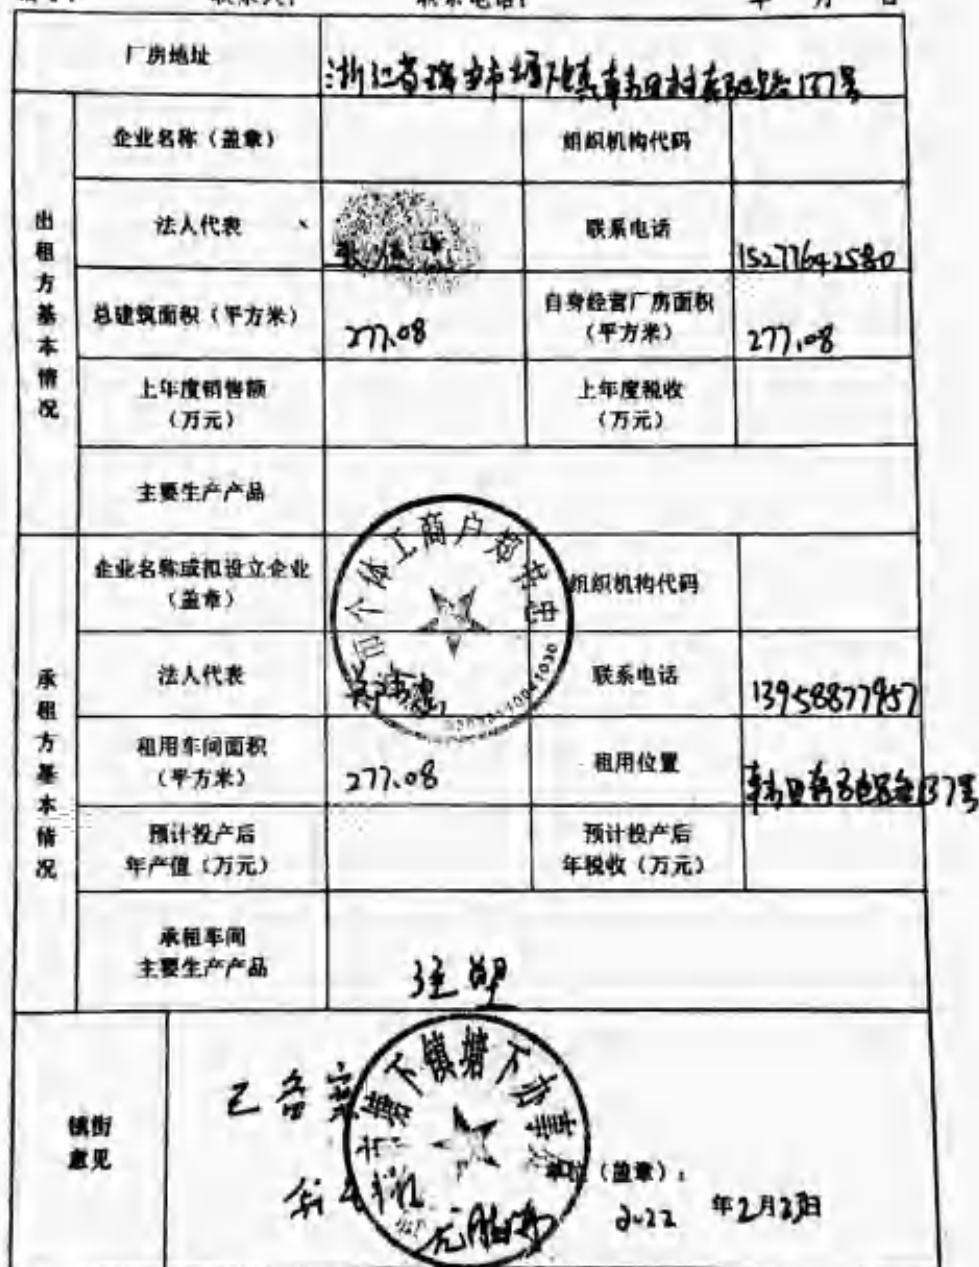 厂房地址
浙江省瑞安市塘下镇韩田村
137号
出租方基本情况
企业名称（盖章）
组织机构代码
法人代表
联系电话
15277642580
总建筑面积（平方米）
277.08
自身经营厂房面积
（平方米）
277.08
上年度销售额
（万元）
上年度税收
（万元）
主要生产产品
承租方基本情况
企业名称或拟设立企业
（盖章）
个体工商户
组织机构代码
法人代表
联系电话
13958877957
租用车间面积
（平方米）
277.08
租用位置
韩田
137号
预计投产后
年产值（万元）
预计投产后
年税收（万元）
承租车间
主要生产产品
注塑
镇街
意见
已备案
塘下镇塘下办事处
（盖章）：
2022 年2月23日